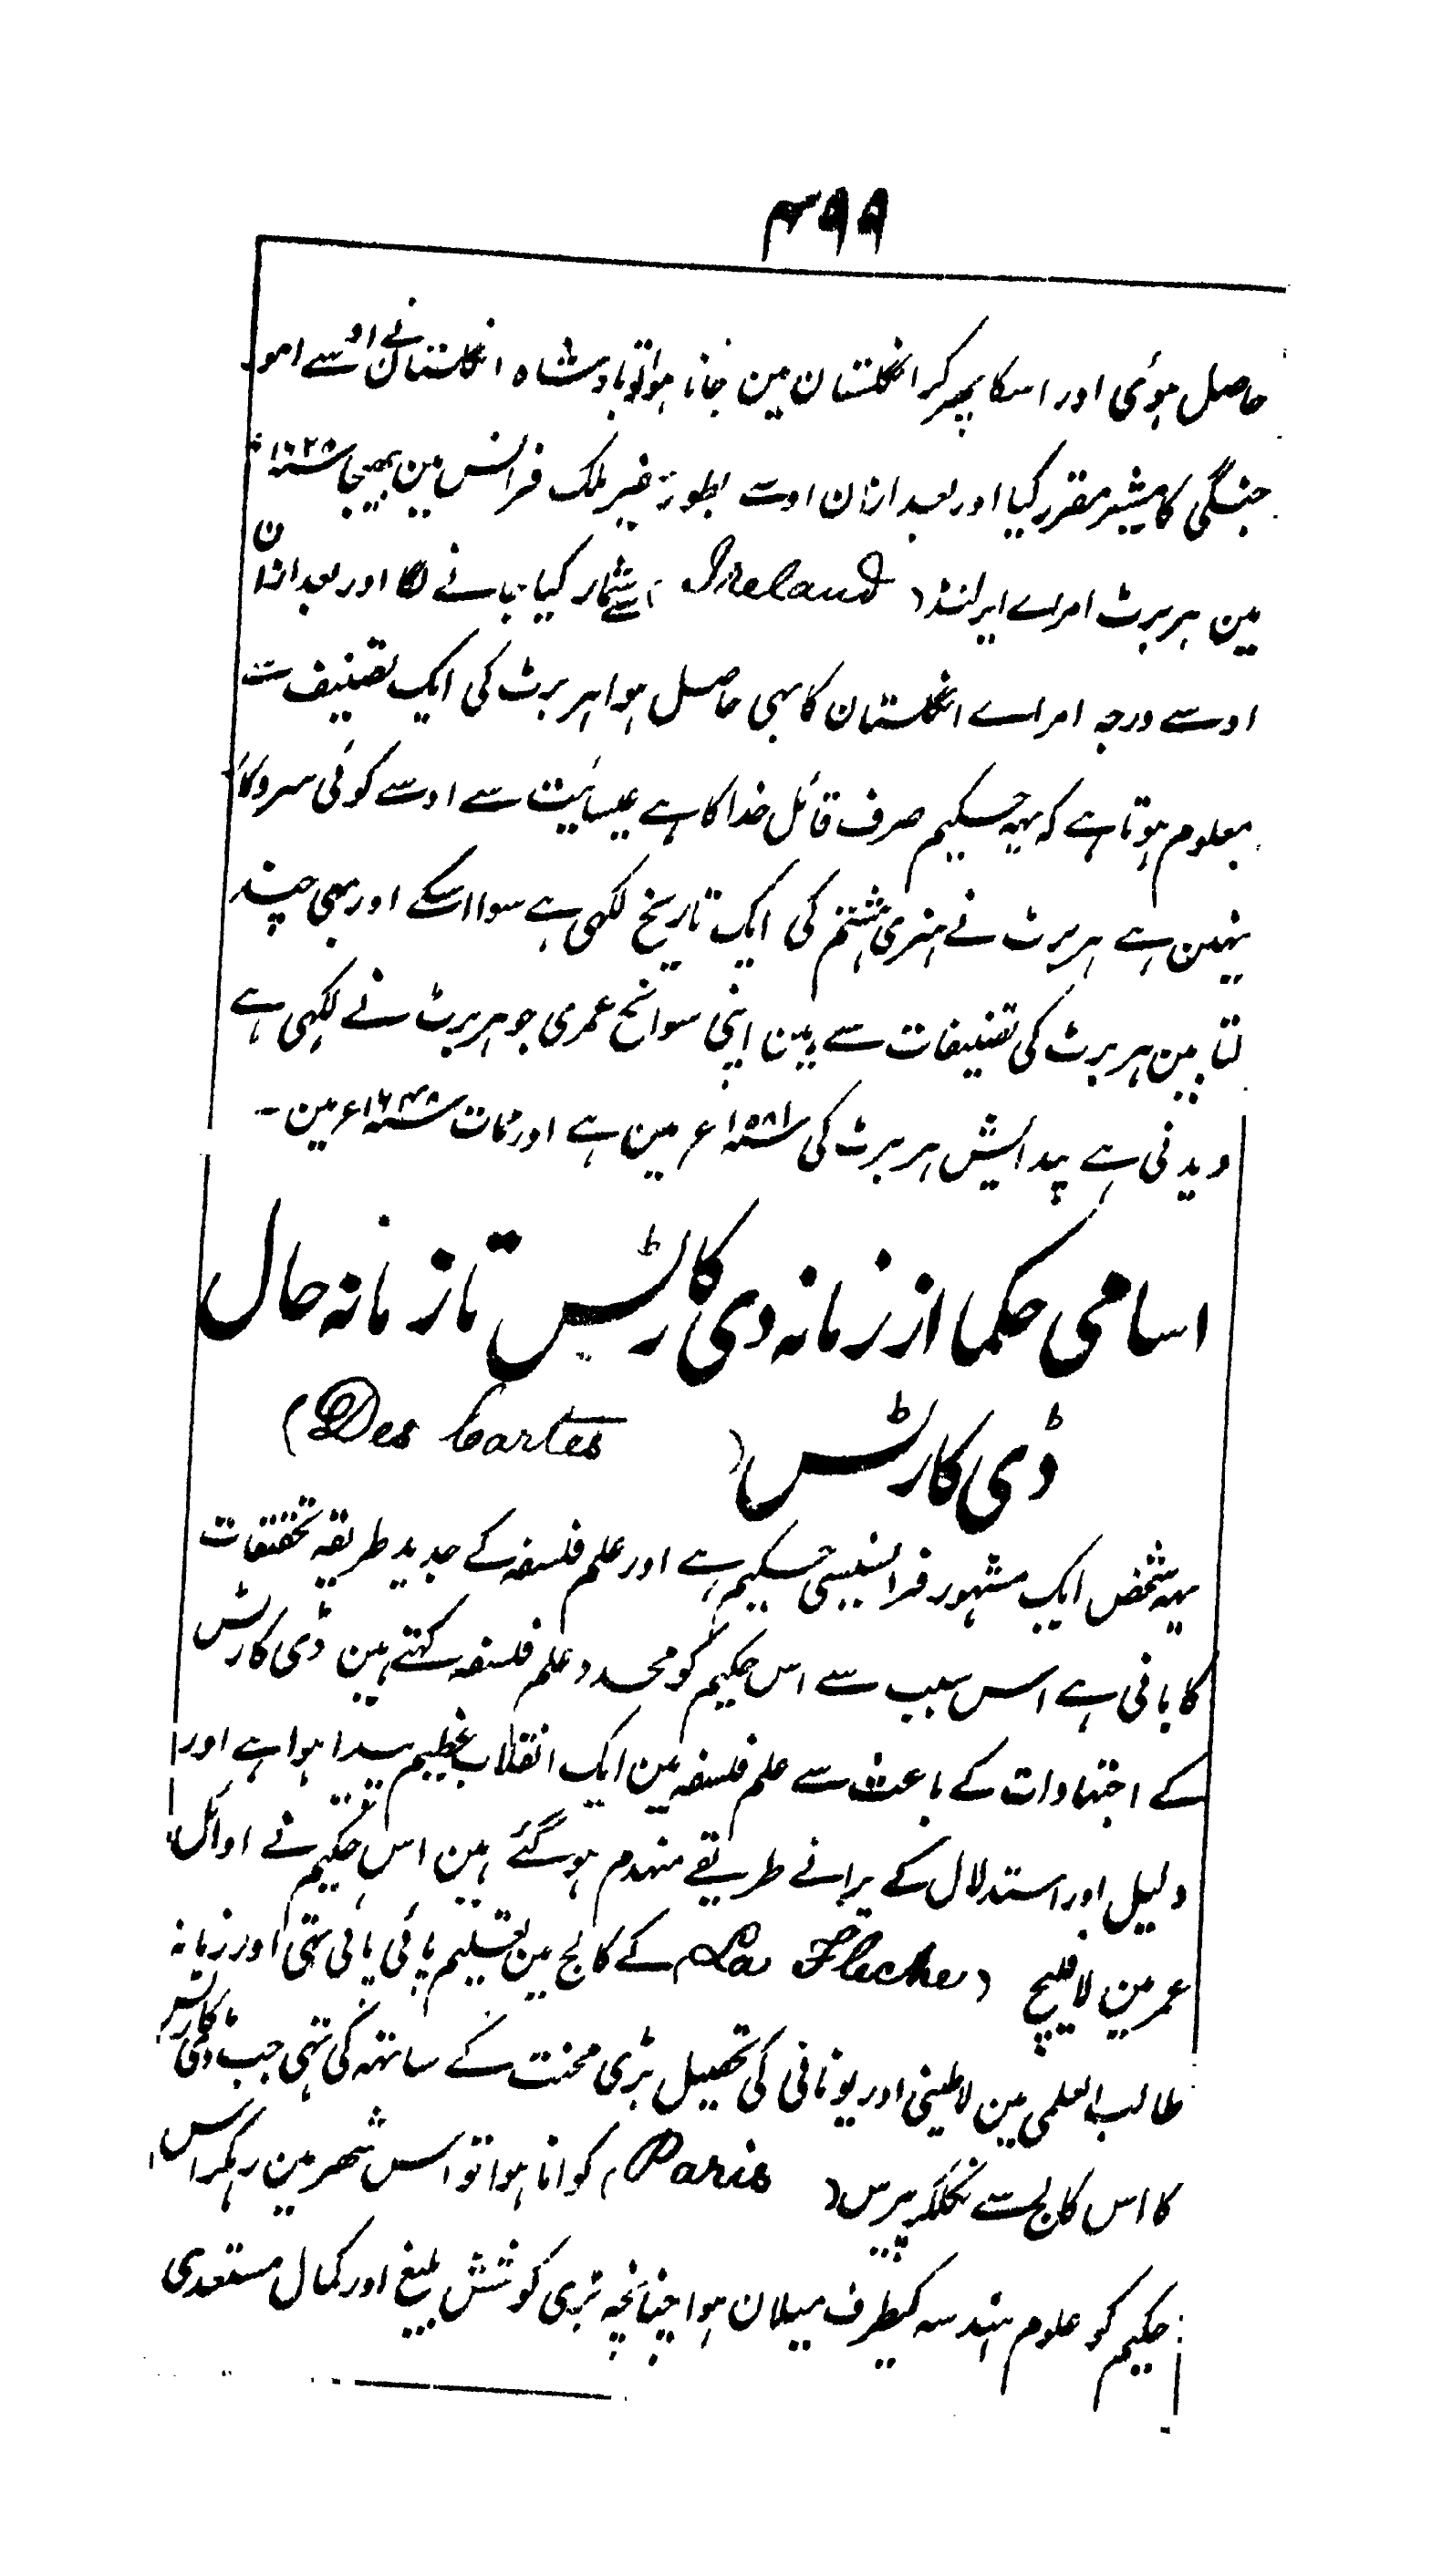 ۴۹۹
حاصل ہوئی اور اسکا پھر کر انگلستان مین جانا ہوا تو بادشاہ انگلستان نے اوسے امور
جنگی کا مشیر مقرر کیا اور بعد ازان اوسے بطور سفیر ملک فرانس مین بھیجا سنہ ۱۶۲۵ء
مین ہربرٹ امراے ایرلنڈ (Ireland) سے شمار کیا جانے لگا اور بعد ازان
اوسے درجہ امراے انگلستان کا بہی حاصل ہوا ہربرٹ کی ایک تصنیف سے
معلوم ہوتا ہے کہ یہہ حکیم صرف قائل خدا کا ہے عیسائیت سے اوسے کوئی سروکار
نہین ہے ہربرٹ نے ہنری ہشتم کی ایک تاریخ لکھی ہے سوا اسکے اور بھی چند
کتابین ہربرٹ کی تصنیفات سے ہین اپنی سوانح عمری جو ہربرٹ نے لکہی ہے
دیدنی ہے پیدائیش ہربرٹ کی سنہ ۱۵۸۱ء مین ہے اور ممات سنہ ۱۶۴۸ء مین ۔
اسامی حکما از زمانہ دی کارٹس تا زمانہ حال
ڈی کارٹس (Des Cartes)
یہہ شخص ایک مشہور فرانسیسی حکیم ہے اور علم فلسفہ کے جدید طریقہ تحقیقات
کا بانی ہے اس سبب سے اس حکیم کو مجدد علم فلسفہ کہتے ہین ڈی کارٹس
کے اجتہادات کے باعث سے علم فلسفہ مین ایک انقلاب عظیم پیدا ہوا ہے اور
دلیل اور استدلال کے پرانے طریقے منہدم ہوگئے ہین اس حکیم نے اوائل
عمر مین لا فلیچ (La Fleche) کے کالج مین تعلیم پائی پائی تہی اور زمانہ
طالب العلمی مین لاطینی اور یونانی کی تحصیل بڑی محنت کے ساتہہ کی تہی جب ڈی کارٹس
کا اس کالج سے نکلکر پیرس (Paris) کو آنا ہوا تو اس شہر مین رہکر اس
حکیم کو علوم ہندسہ کیطرف میلان ہوا چنانچہ بڑی کوشش بلیغ اور کمال مستعدی